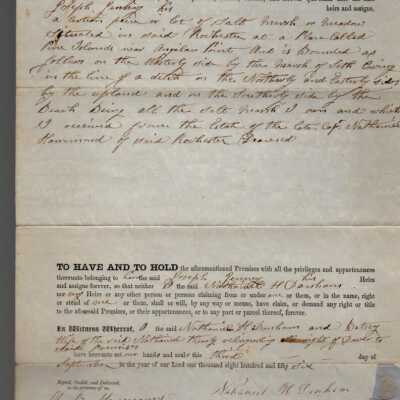 heirs and assigns,
Joseph his
a certain piece or lot of Salt Marsh or Meadow
Situated in said Rochester at a Place Called
Pine Islands near Angelica Point And is Bounded as
follows on the Westerly side by the Marsh of Seth
in the line of a ditch on the Northerly and Easterly Sides
by the upland and on the Southerly side by the
Beach Being all the Salt Marsh I own and which
I received from the Estate of the late Capt Nathaniel
Hammond of said Rochester Deceased
TO HAVE AND TO HOLD the aforementioned Premises with all the privileges and appurtenances
thereunto belonging to him the said Joseph his Heirs
and assigns forever, so that neither I the said Nathaniel H
nor my Heirs or any other person or persons claiming from or under me or them, or in the name, right
or stead of me or them, shall or will, by any way or means, have, claim, or demand any right or title
to the aforesaid Premises, or their appurtenances, or to any part or parcel thereof, forever.
In Witness Whereof, I the said Nathaniel H and Betsey
Wife of the said Nathaniel right of Dower to
Said Premises
have hereunto set our hands and seals this third day of
September in the year of our Lord one thousand eight hundred and fifty
Signed, Sealed, and Delivered,
in the presence of us,
Nathaniel H